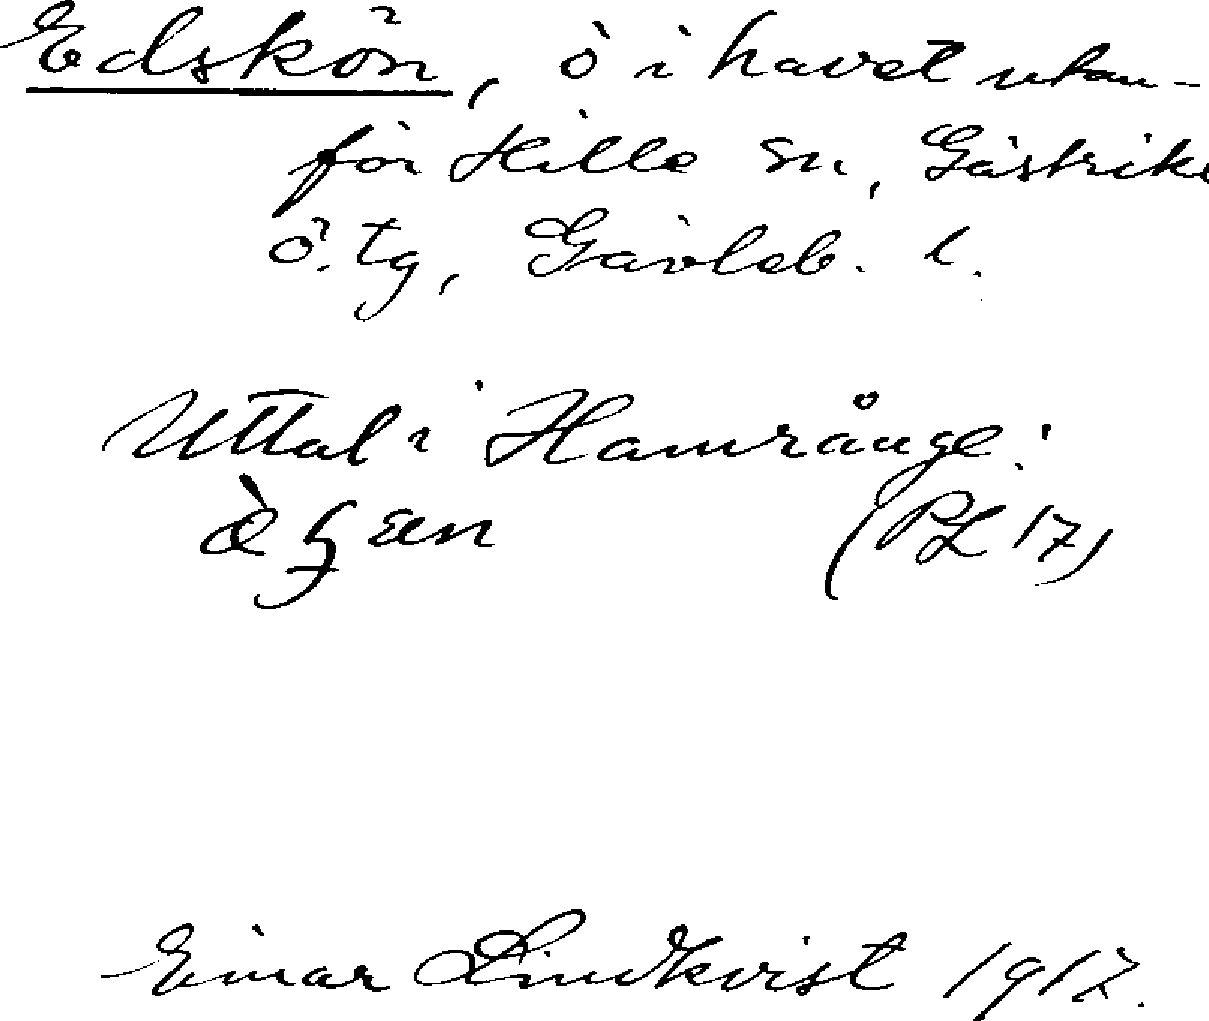 Edskön, ö i havet utan-
för Hille sn, Gästrikl
ö. tg, Gävleb. l.
Uttal i Hamrånge:
(PL 17)
Einar Lindkvist 1917.